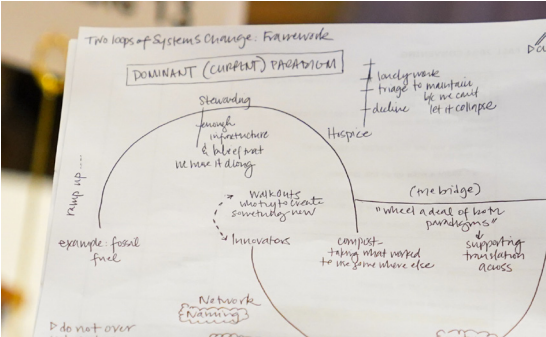 Two loops of Systems Change: Framework
DOMINANT (CURRENT) PARADIGM
lonely work
triage to maintain
b/c we can't
let it collapse
decline
Stewarding
enough
infrastructure
& belief that
we move it along
Hospice
ramp up....
walkouts
who try to create
something new
Innovators
(the bridge)
"wheel a deal of both
paradigms"
supporting
translation
across
example: fossil
fuel
compost-
taking what worked
to use somewhere else
Network
Naming
do not over